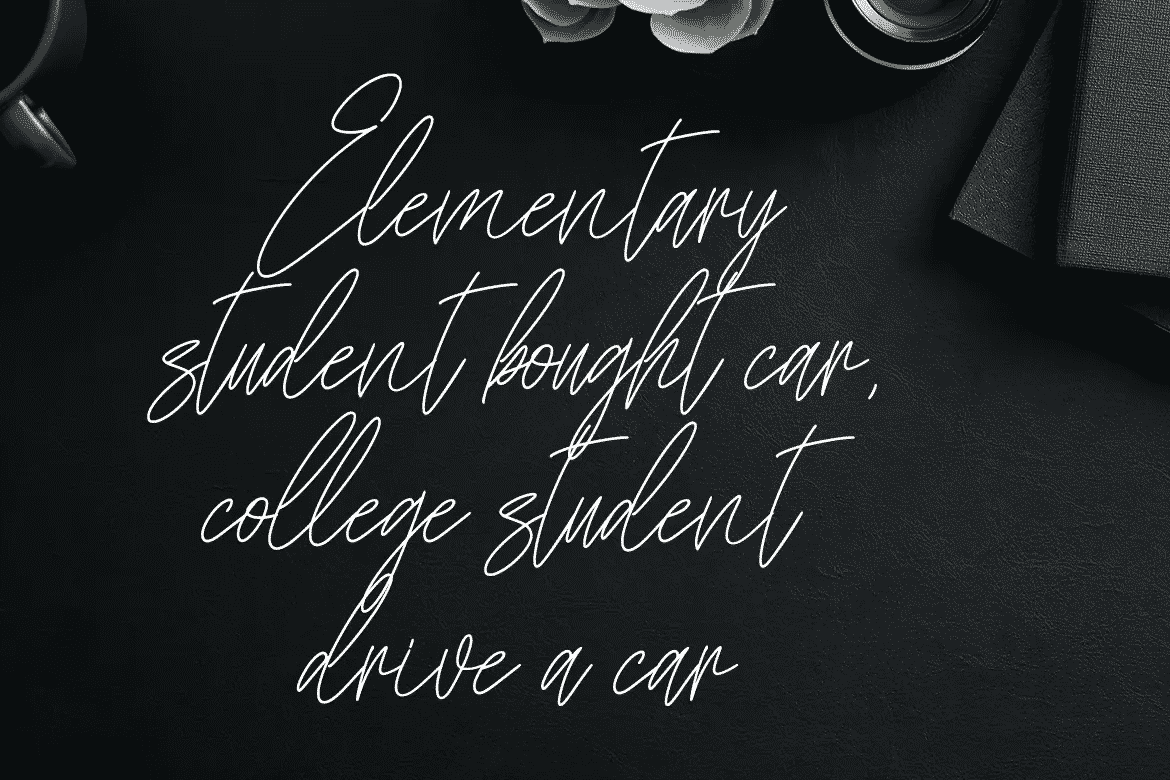 Elementary
student bought car,
college student
drive a car